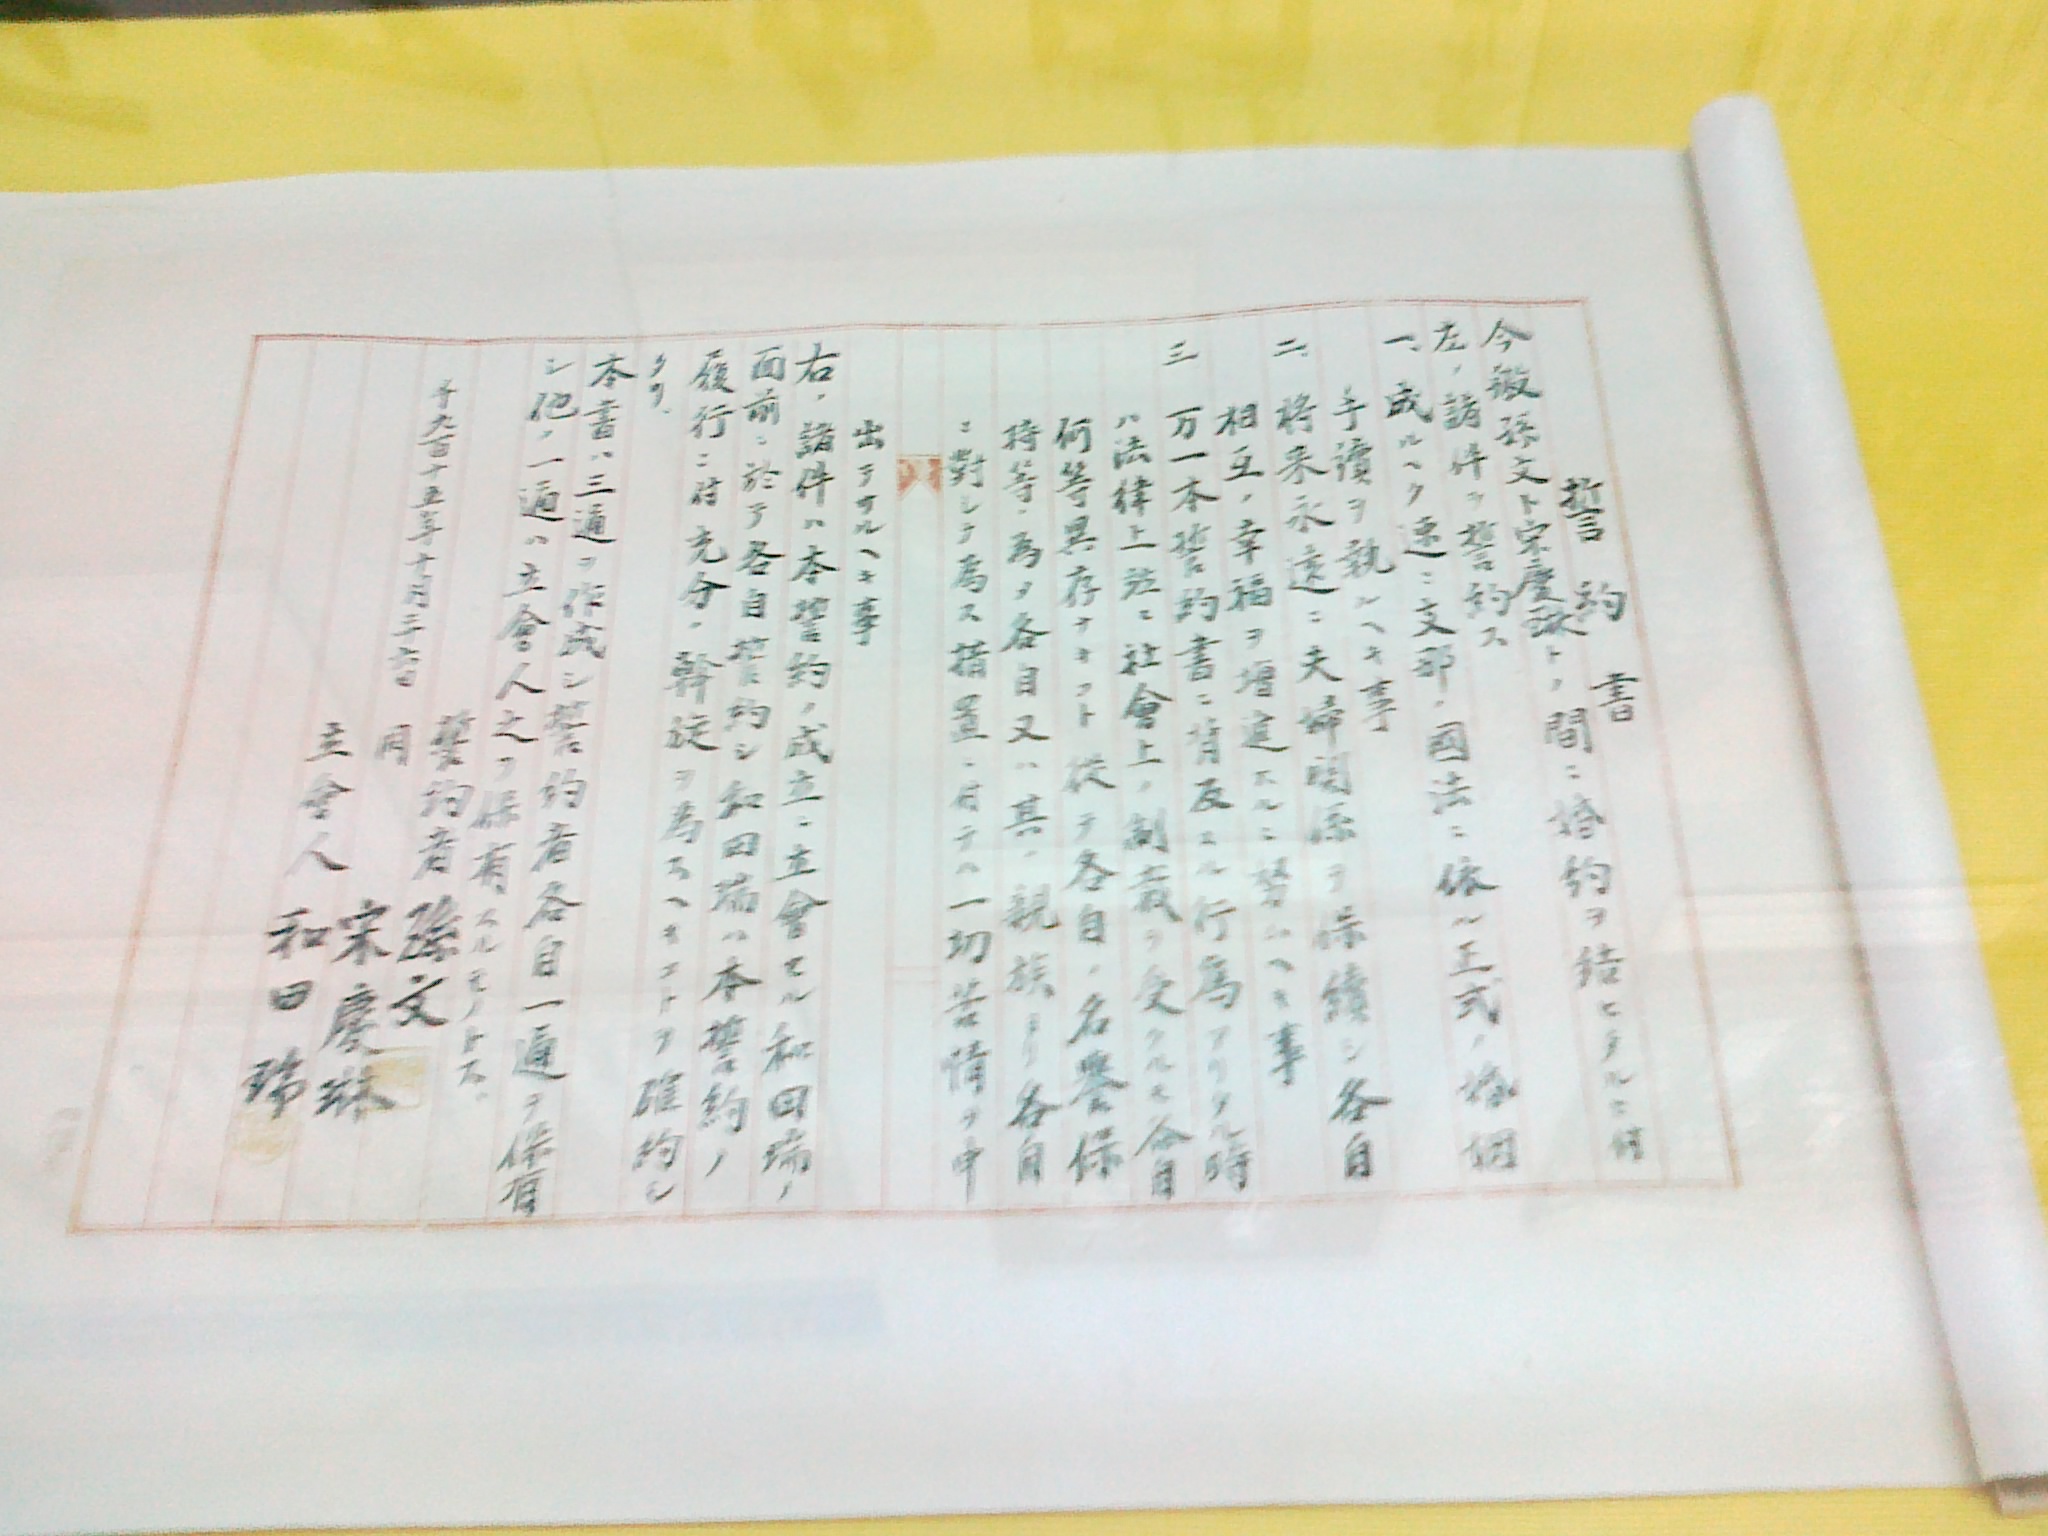 誓約書
今般孫文ト宋慶琳トノ間ニ婚約ヲ結ヒタルニ付
左ノ諸件ヲ誓約ス
一、成ルヘク速ニ支那ノ國法ニ依ル正式ノ婚姻
手續ヲ執ルヘキ事
二、将来永遠ニ夫婦関係ヲ保續シ各自
相互ノ幸福ヲ増進スルニ努ムヘキ事
三 万一本誓約書ニ背反スル行為アリタル時
ハ法律上並ニ社會上ノ制裁ヲ受クルモ各自
何等異存ナキコト 従テ各自ノ名譽保
持等ノ為メ各自又ハ其ノ親族ヨリ各自
ニ對シテ為ス措置ニ付テハ一切苦情ヲ申
出テサルヘキ事
右ノ諸件ハ本誓約ノ成立ニ立會セル和田瑞ノ
面前ニ於テ各自誓約シ和田瑞ハ本誓約ノ
履行ニ付充分ノ幹旋ヲ為スヘキコトヲ確約シ
タリ、
本書ハ三通ヲ作成シ誓約者各自一通ヲ保有
シ他ノ一通ハ立會人之ヲ保有スルモノトス。
千九百十五年十月二六日
誓約者 孫文
同 宋慶琳
立會人 和田瑞